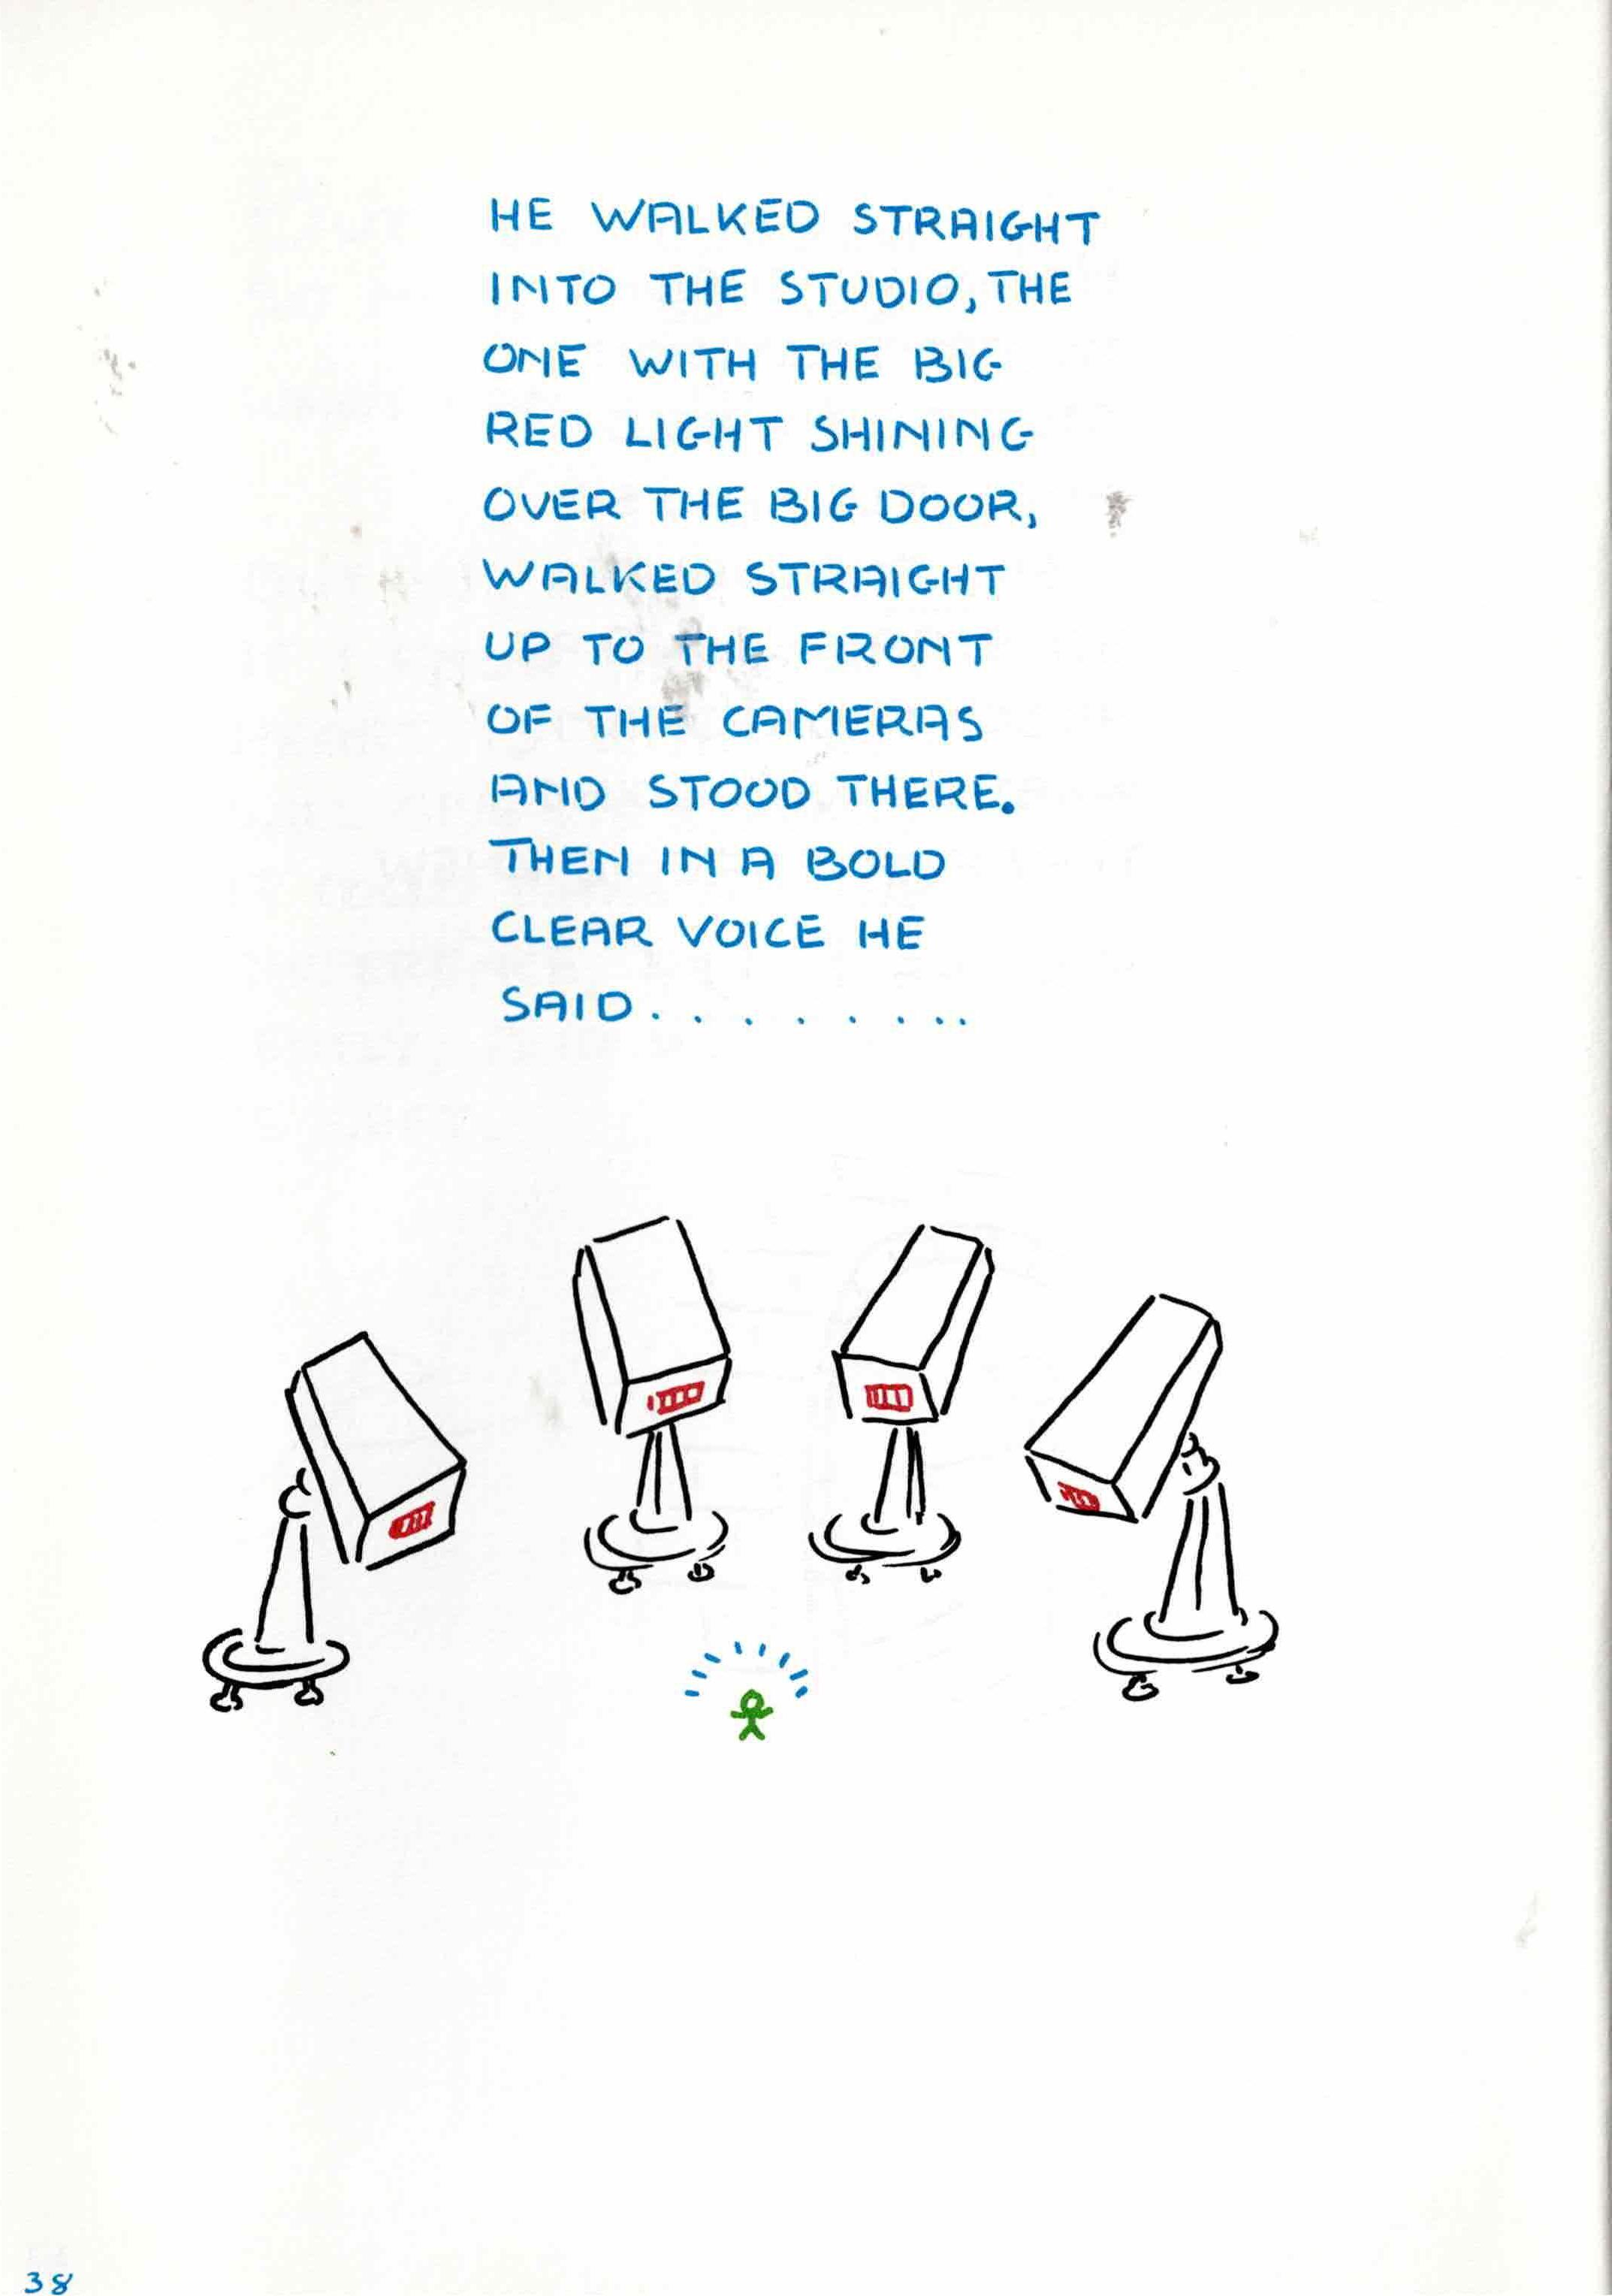 HE WALKED STRAIGHT
INTO THE STUDIO, THE
ONE WITH THE BIG
RED LIGHT SHINING
OVER THE BIG DOOR,
WALKED STRAIGHT
UP TO THE FRONT
OF THE CAMERAS
AND STOOD THERE.
THEN IN A BOLD
CLEAR VOICE HE
SAID.........
38